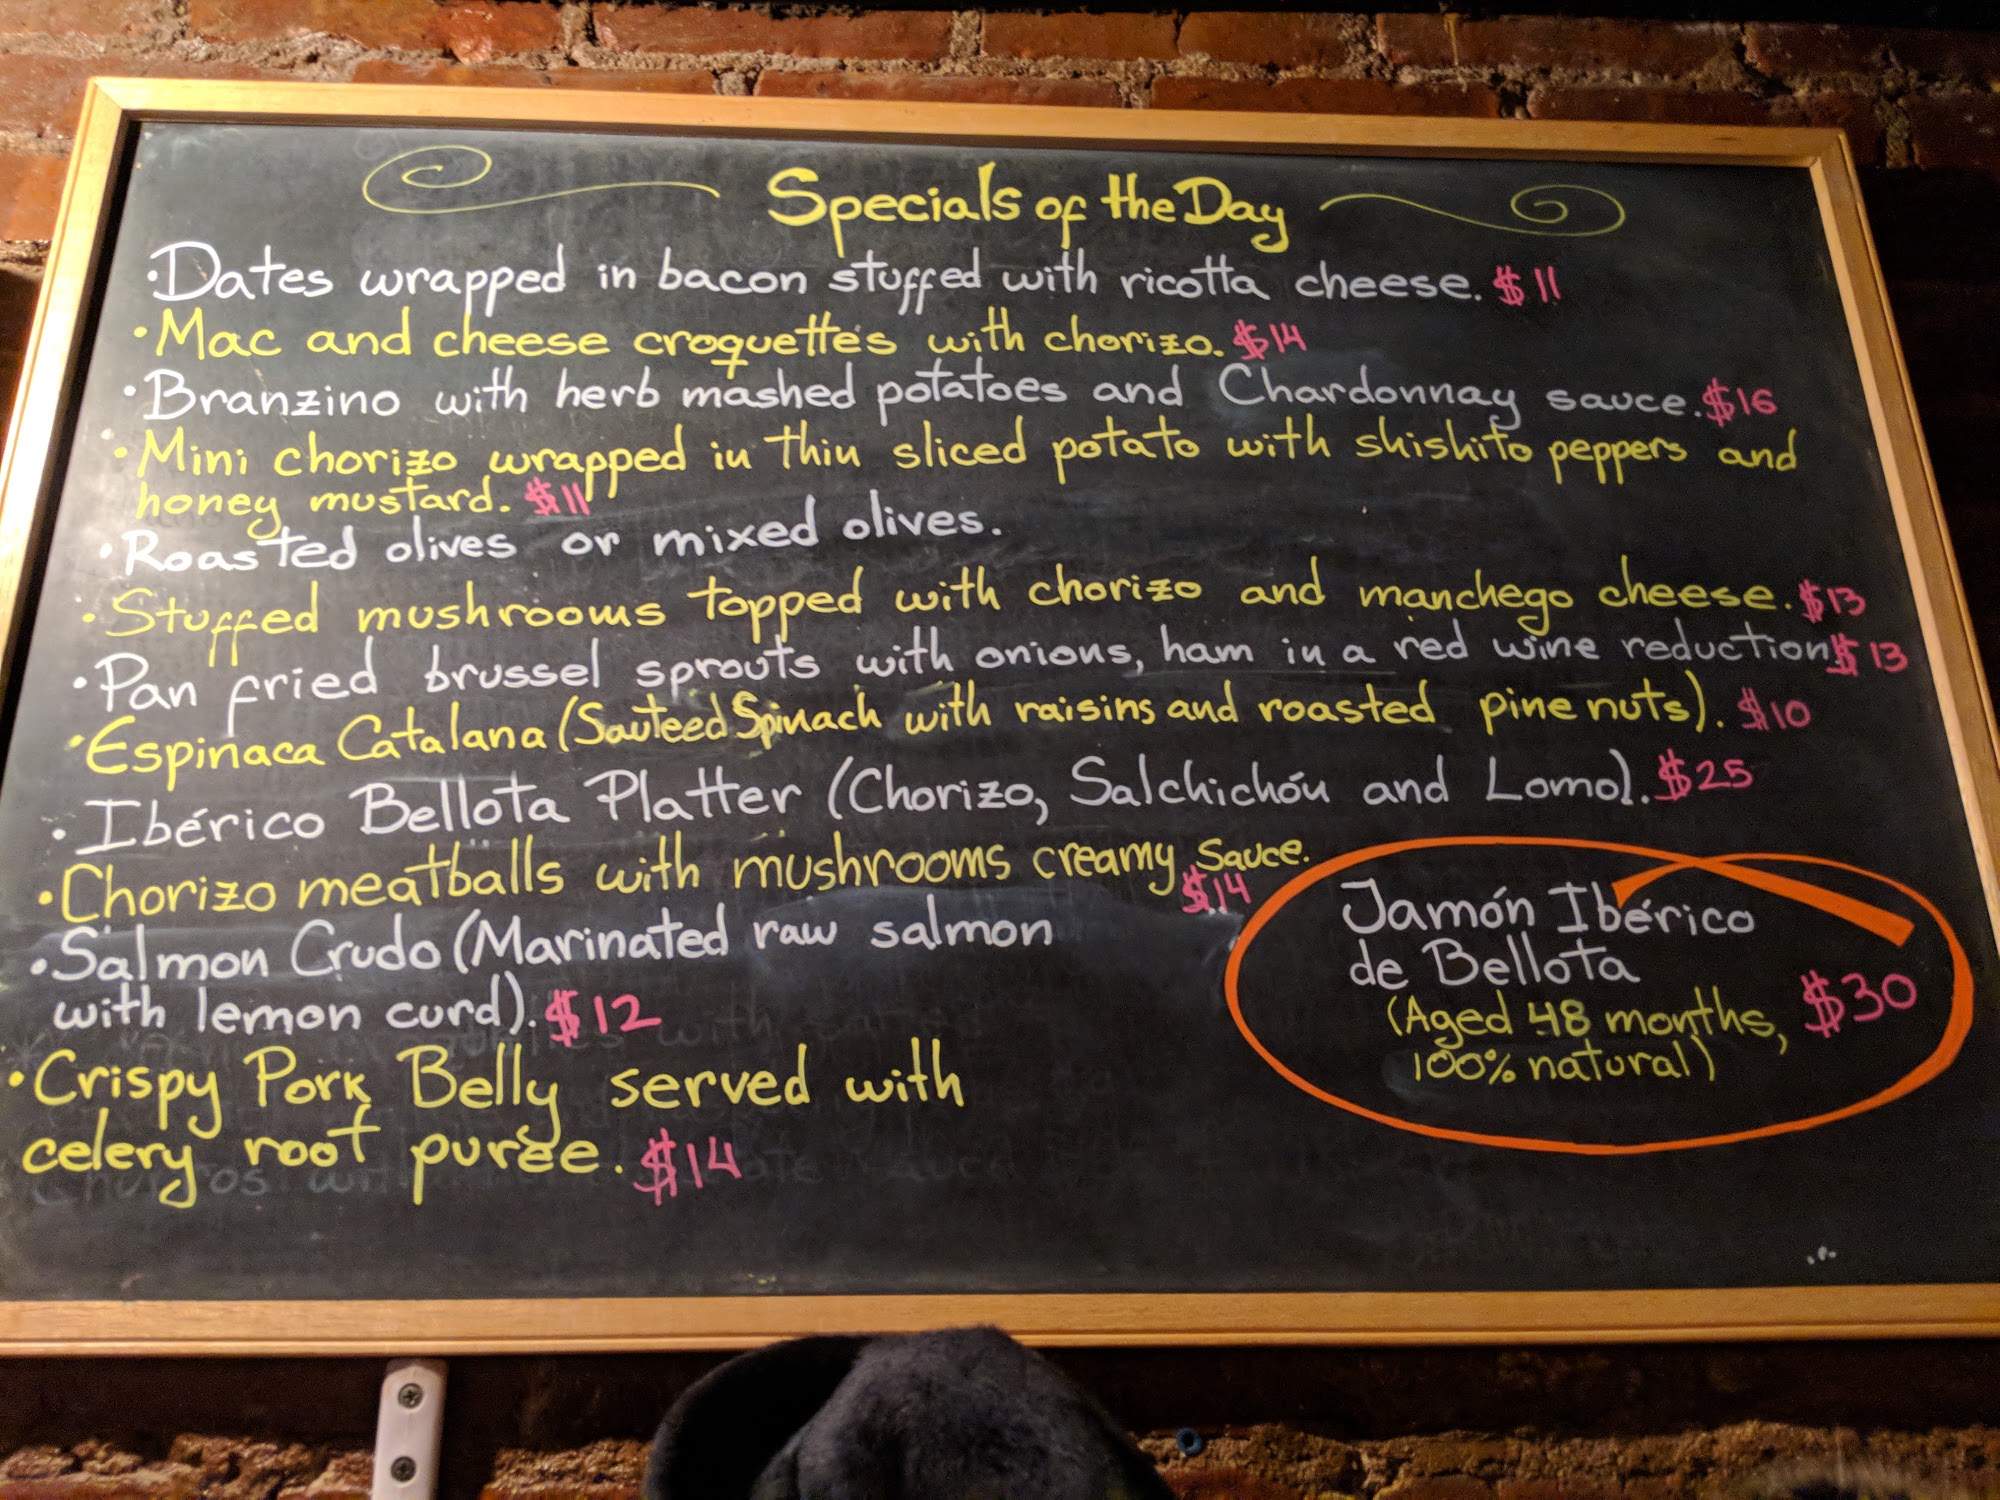 Specials of the Day
• Dates wrapped in bacon stuffed with ricotta cheese. $11
• Mac and cheese croquettes with chorizo. $14
• Branzino with herb mashed potatoes and Chardonnay sauce. $16
• Mini chorizo wrapped in thin sliced potato with shishito peppers and
honey mustard. $11
• Roasted olives or mixed olives.
• Stuffed mushrooms topped with chorizo and manchego cheese. $13
• Pan fried brussel sprouts with onions, ham in a red wine reduction $13
• Espinaca Catalana (Sauteed Spinach with raisins and roasted pine nuts). $10
• Ibérico Bellota Platter (Chorizo, Salchichón and Lomo). $25
• Chorizo meatballs with mushrooms creamy sauce.
$14
• Salmon Crudo (Marinated raw salmon
with lemon curd). $12
• Crispy Pork Belly served with
celery root purée. $14
Jamón Ibérico
de Bellota
(Aged 48 months, $30
100% natural)